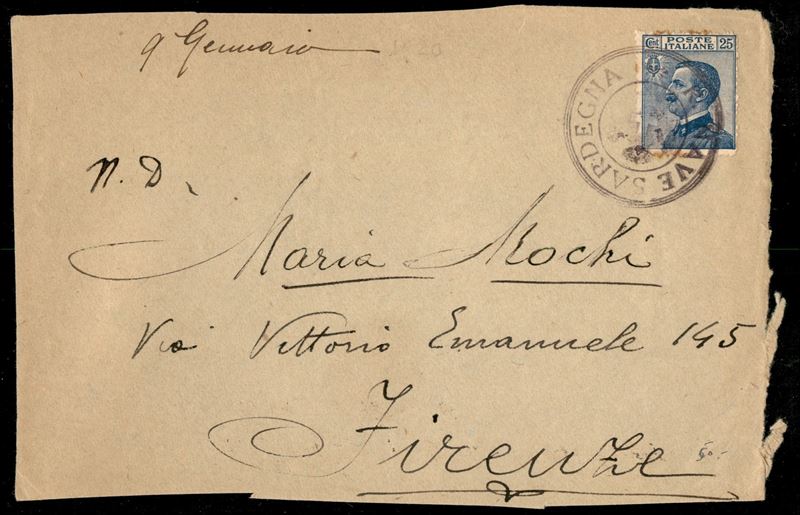 9 Gennaio
Cent. POSTE ITALIANE 25
R. NAVE SARDEGNA
N. D.
Maria Mochi
Via Vittorio Emanuele 145
Firenze